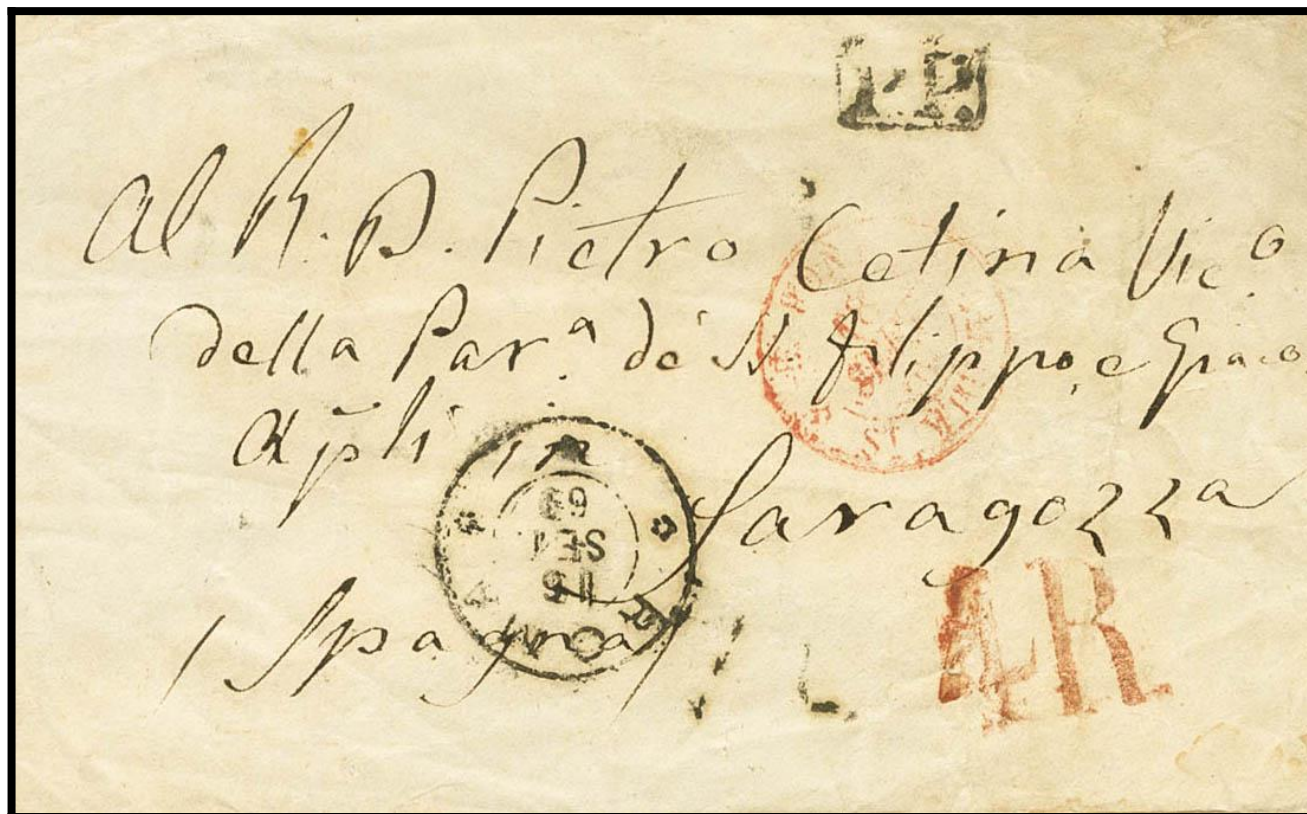 P.P.
Al R. D. Pietro Cetina Vic.o
della Par.a de SS Filippo, e Giaco
Apli in
Saragozza
(Spagna)
ROMA
SET
69
4R